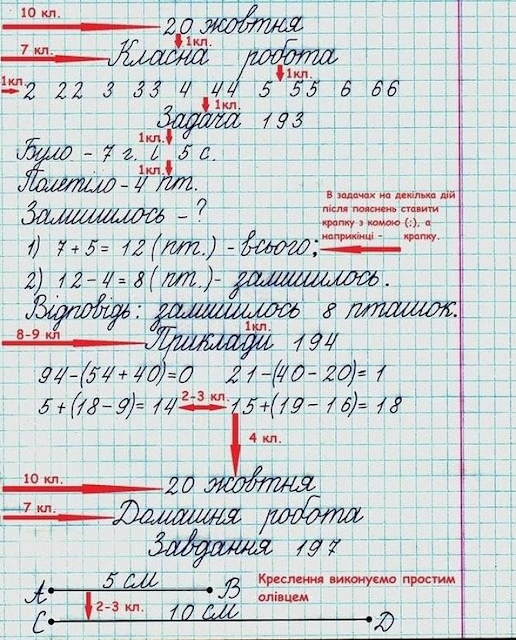 10 кл. 20 жовтня
1кл.
7 кл. Класна робота
1кл. 1кл.
2 22 3 33 4 44 5 55 6 66
1кл.
Задача 193
1кл.
Було - 7 г. і 5 с.
1кл.
Полетіло - 4 пт.
Залишилось - ?
В задачах на декілька дій
після пояснень ставити
крапку з комою (;), а
наприкінці - крапку.
1) 7 + 5 = 12 (пт.) - всього;
2) 12 - 4 = 8 (пт.) - залишилось.
Відповідь: залишилось 8 пташок.
1кл.
8-9 кл Приклади 194
94-(54+40)=0 21-(40-20)=1
5+(18-9)=14 2-3 кл. 15+(19-16)=18
4 кл.
10 кл. 20 жовтня
7 кл. Домашня робота
Завдання 197
A 5 см B
Креслення виконуємо простим
олівцем
2-3 кл.
C 10 см D